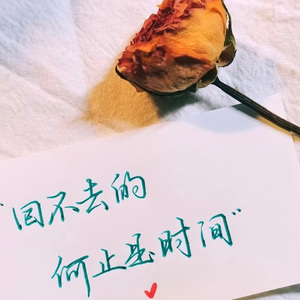 “回不去的
何止是时间”